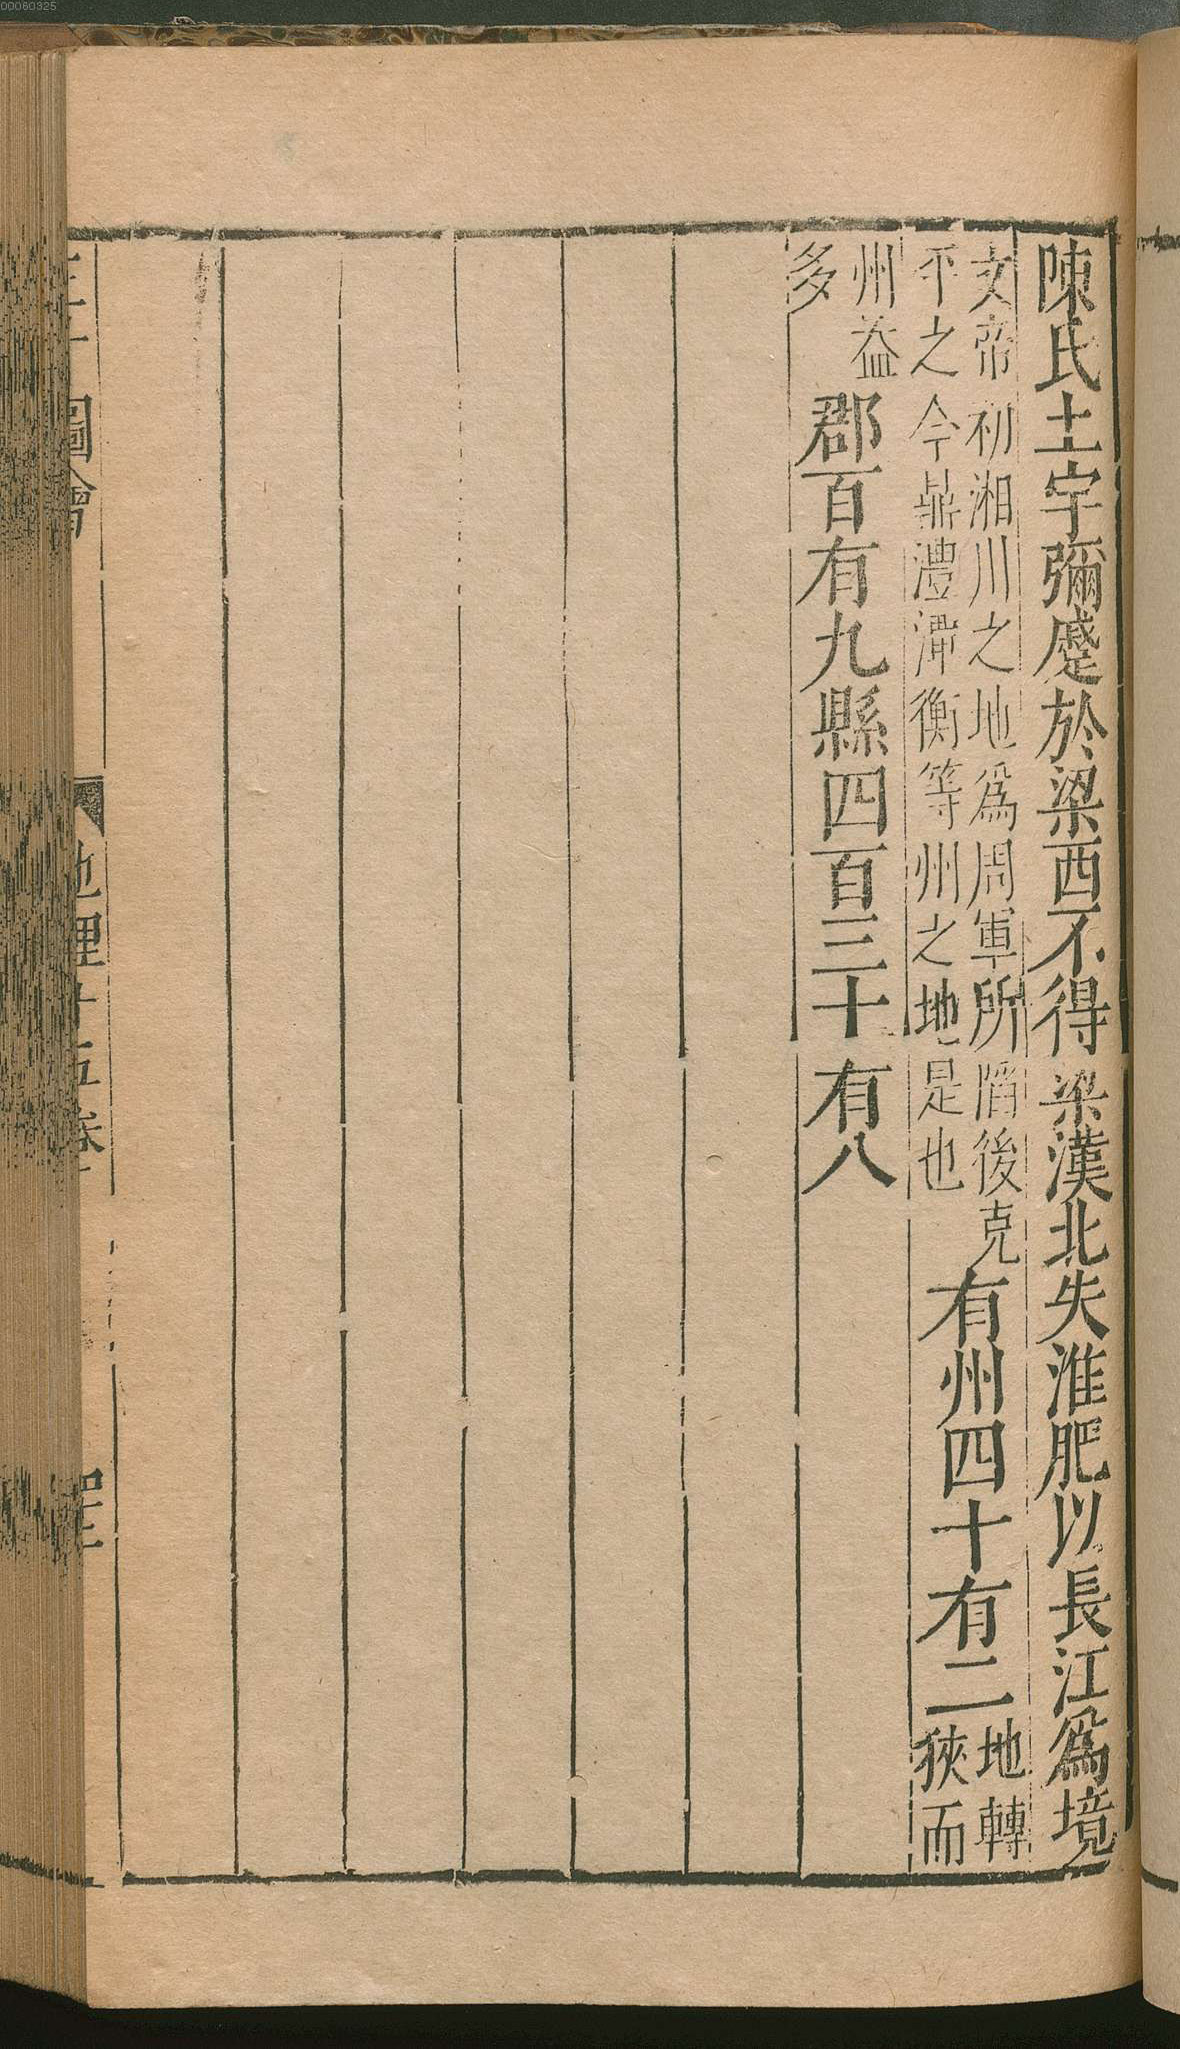 00060325
陳氏土宇彌蹙於梁西不得梁漢北失淮肥以長江爲境
文帝初湘川之地爲周軍所滔後克
平之今鼎澧潭衡等州之地是也
有州四十有二
地轉
狹而
州益
多
郡百有九縣四百三十有八
圖會
地理十五卷